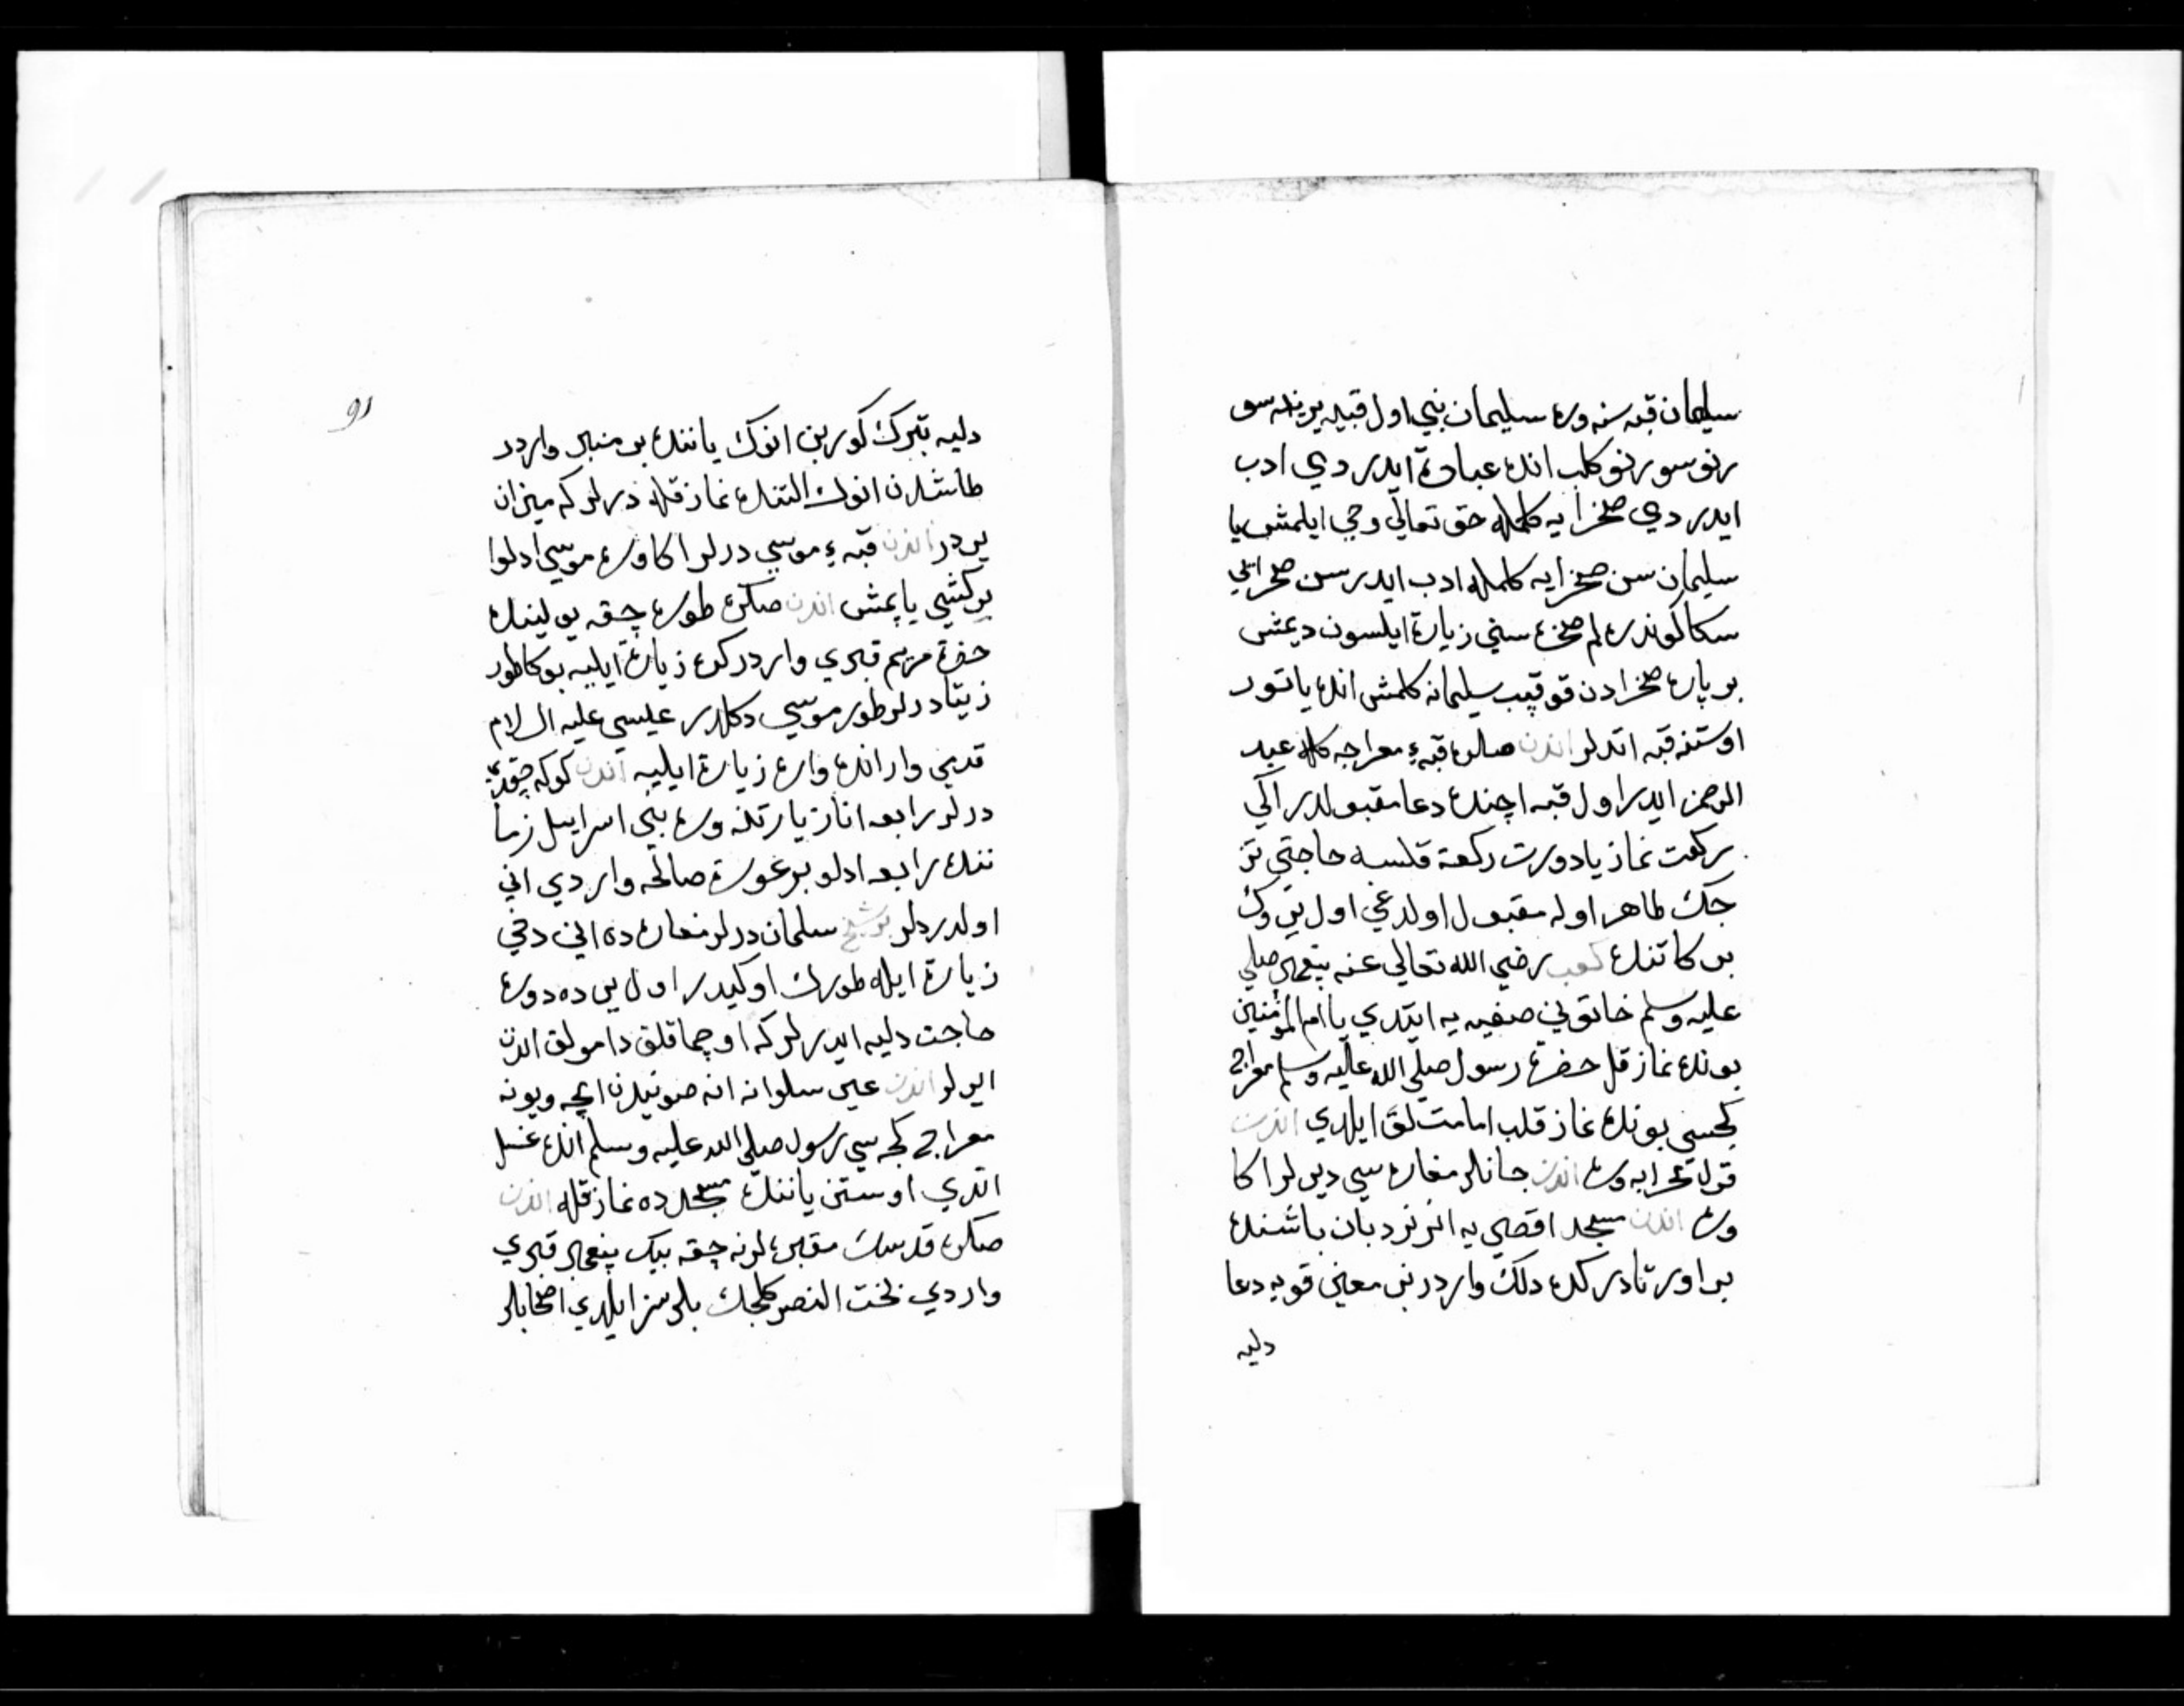 سليمان قبه سنه وره سليمان نبي اول قبيه يرندہ سو
رنو سورنو كلب اندہ عبادة ايدر دي ادب
ايدر دي صخرايه كلمكه حق تعالي وحي ايلمش يا
سليمان سن صخرايه كلمكه ادب ايدرسن صخرايي
سكا كوندره لم صخره سني زيارة ايلسون ديمش
بر پاره صخرادن قوقپب سليمانه كلمش اندہ ياتور
اوستنه قبه اتدلر اندن صكره قبهء معراجه كله عبد
الرحمن ايدر اول قبه اچندہ دعا مقبولدر اكي
ركعت نماز يا دورت ركعة قلسه حاجتي تز
جك ظاهر اوله مقبول اولدغي اول يروك
بر كاتندہ كعب رضي الله تعالي عنه پيغمبر صلي
عليه وسلم خاتوني صفيه يه ايتدي يا ام المؤمنين
بوندہ نماز قل حضرة رسول صلي الله عليه وسلم معراج
كجسي بوندہ نماز قلب امامت لق ايلدي اندن
قزل محرابه وره اندن جانلر مغاره سي ديرلر اكا
وره اندن مسجد اقصي يه انر نردبان باشندہ
بر اورتادركدہ دلك واردر بني معيني قويه دعا
دليه
91
دليه تبرك كوربن انوك ياننده بر منبر واردر
طاشدن انوك التندہ نماز قله درلر كه ميزان
يردر اندن قبهء موسي درلر اكا وره موسي ادلوا
بر كشي ياپمش اندن صكره طوره چقه يولينده
حضرة مريم قبري واردر كره زيارة ايليه بوكا طور
زيتا درلر طور موسي دكلدر عيسي عليه السلام
قدمي وار اندہ واره زيارة ايليه اندن كوكه چقدي
درلر رابعه انا زيارتنه وره بني اسرايل زما
ننده رابعه ادلو بر عورة صالحه واردي اني
اولدردلر بر شيخ سلمان درلر مغاره ده اني دخي
زيارة ايله طورك اوكيدر اول ير ده دوره
حاجت دليه ايدرلر كه اوچماقلق دامولق اندن
ايرلر اندن عين سلوانه انه صويندن ايچه ويونه
معراج كجه سي رسول صلي الله عليه وسلم اندہ غسل
اتدي اوستن ياننده مسجد ده نماز قله اندن
صكره قدسك مقبره لرنه چقه بيك پيغمبر قبري
واردي بخت النصر كلجك بلرسز ايلدي اصحابلر